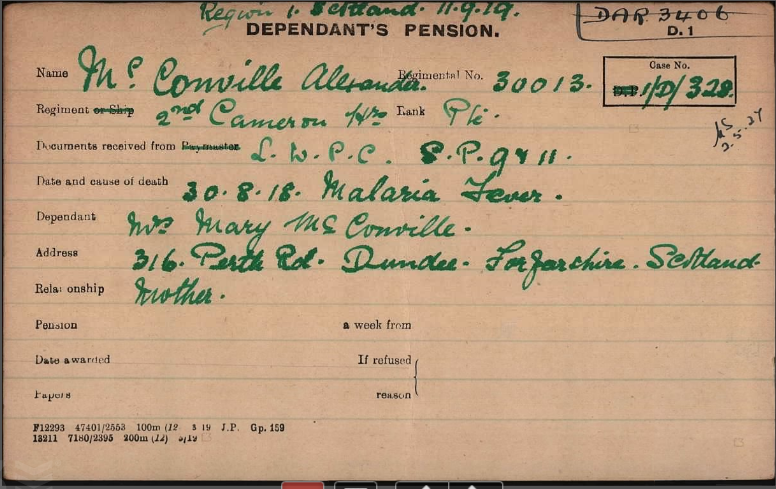 Region 1. Scotland. 11.9.19.
DAR 3406
DEPENDANT'S PENSION.
D. 1
Name Mc Conville Alexander. Regimental No. 30013.
Case No.
1/D/328.
Regiment or Ship 2nd Cameron Hrs Rank Pte.
2.5.27
Documents received from Paymaster L.W.P.C. S.P. 9411.
Date and cause of death 30.8.18. Malaria Fever.
Dependant Mrs Mary McConville.
Address 316. Perth Rd. Dundee. Forfarshire. Scotland.
Relationship Mother.
Pension a week from
Date awarded If refused
Papers reason
F12293 47401/2553 100m (12 3 19 J.P. Gp. 159
13211 7180/2395 200m (12) 5/19